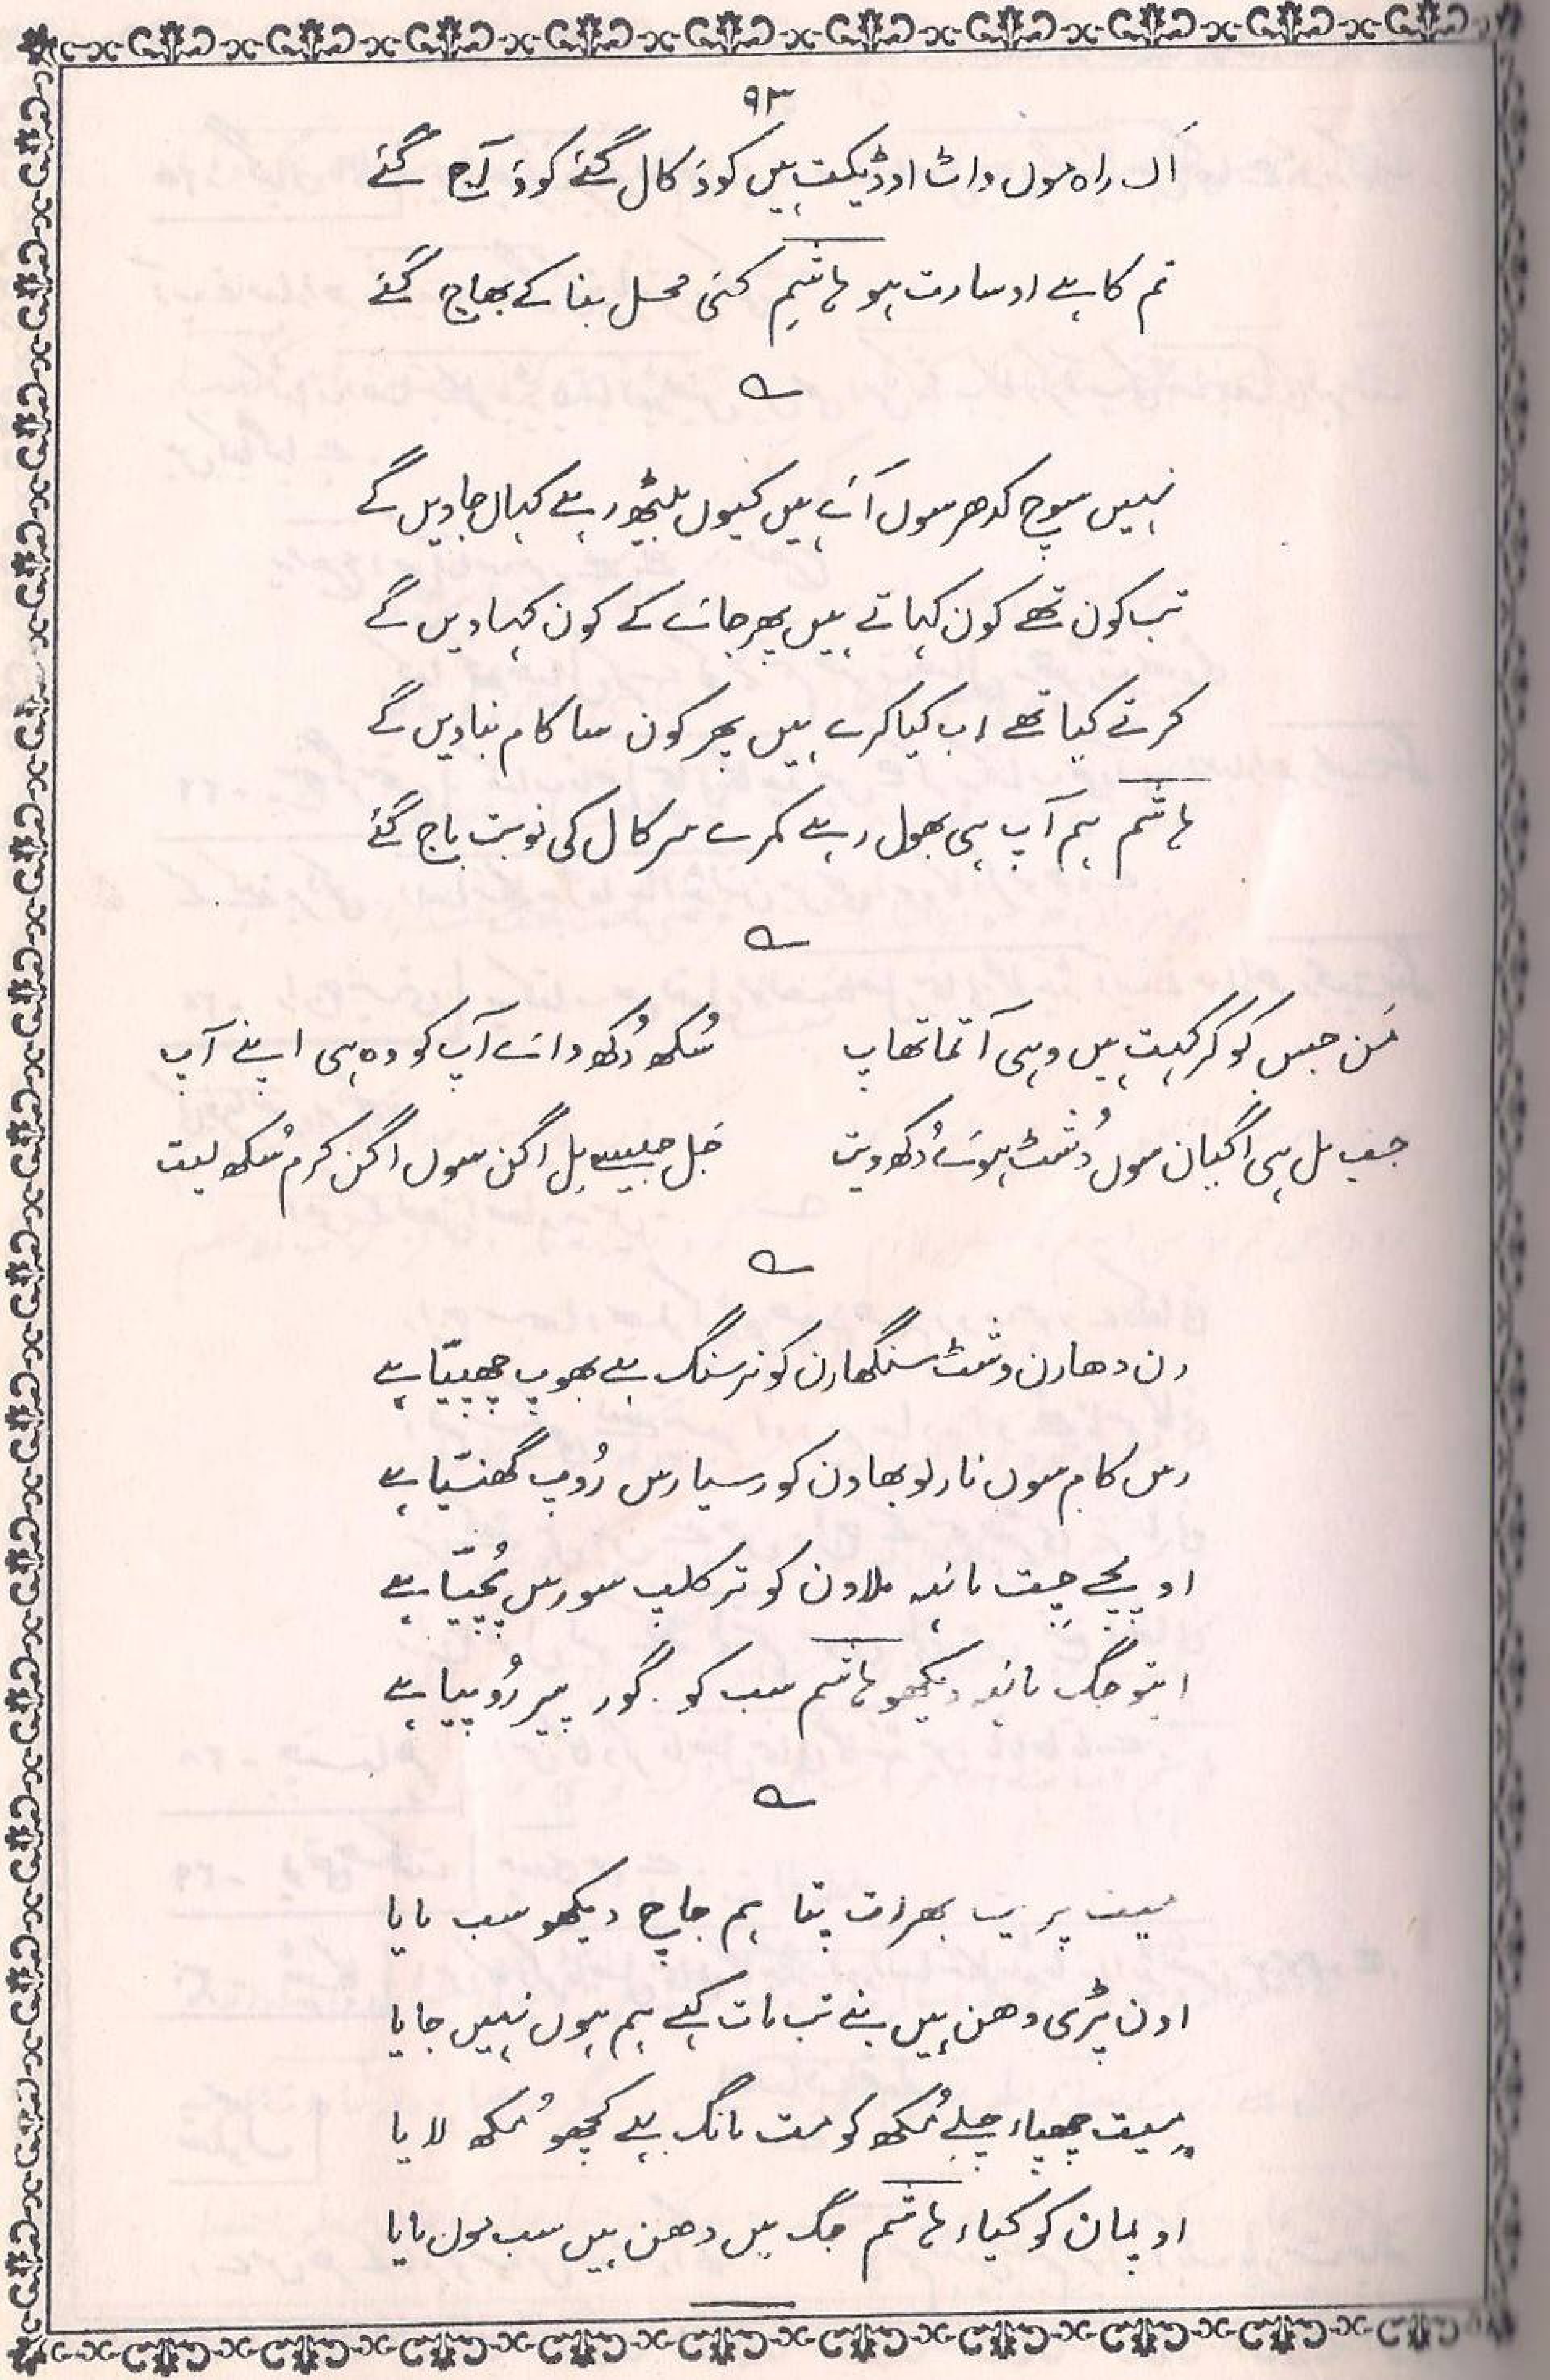 ۹۳
اَک راہ موں واٹ اوڈیکت ہیں کوؤ کال گئے کوؤ آج گئے
تم کاہے اوسارت ہو ہاشم کئی محل بنا کے بھاج گئے
نہیں سوچ کدھر سوں آئے ہیں کیوں بیٹھ رہے کہاں جاویں گے
تب کون تھے کون کہاتے ہیں پھر جائے کے کون کہاویں گے
کرتے کیا تھے اب کیا کرے ہیں پھر کون سا کام بناویں گے
ہاشم ہم آپ ہی بھول رہے کمرے سر کال کی نوبت باج گئے
مَن جس کو گر کہت ہیں وہی آتما تھاپ
سُکھ دُکھ دائے آپ کو وہ ہی اپنے آپ
جب مل ہی اگیان سوں دُشٹ ہوئے دُکھ دیت
جَل جیسے مِل اگن سوں اگن کرم سُکھ لیت
رن دھارن دشٹ سنگھارن کو نرسنگ ہے بھوپ چھپیّا ہے
رس کام سوں نار لوبھاون کو رسیا رس رُوپ گھنیّا ہے
اوپجے چِت مانہہ ملاون کو تر کلپ سورس پُچیّا ہے
ایتو جگ مانہہ دیکھو ہاشم سب کو گور پیر رُوپیا ہے
میت پریت بھرات پتا ہم جاچ دیکھو سب مایا
اون پڑی دھن ہیں بنے تب مات کہے ہم ہوں نہیں جایا
میت چھپاء چلے مُکھ کو مت مانگ ہے کچھو مُکھ لایا
اوپمان کو کیاء ہاشم جگ میں دھن ہیں سب موں مایا